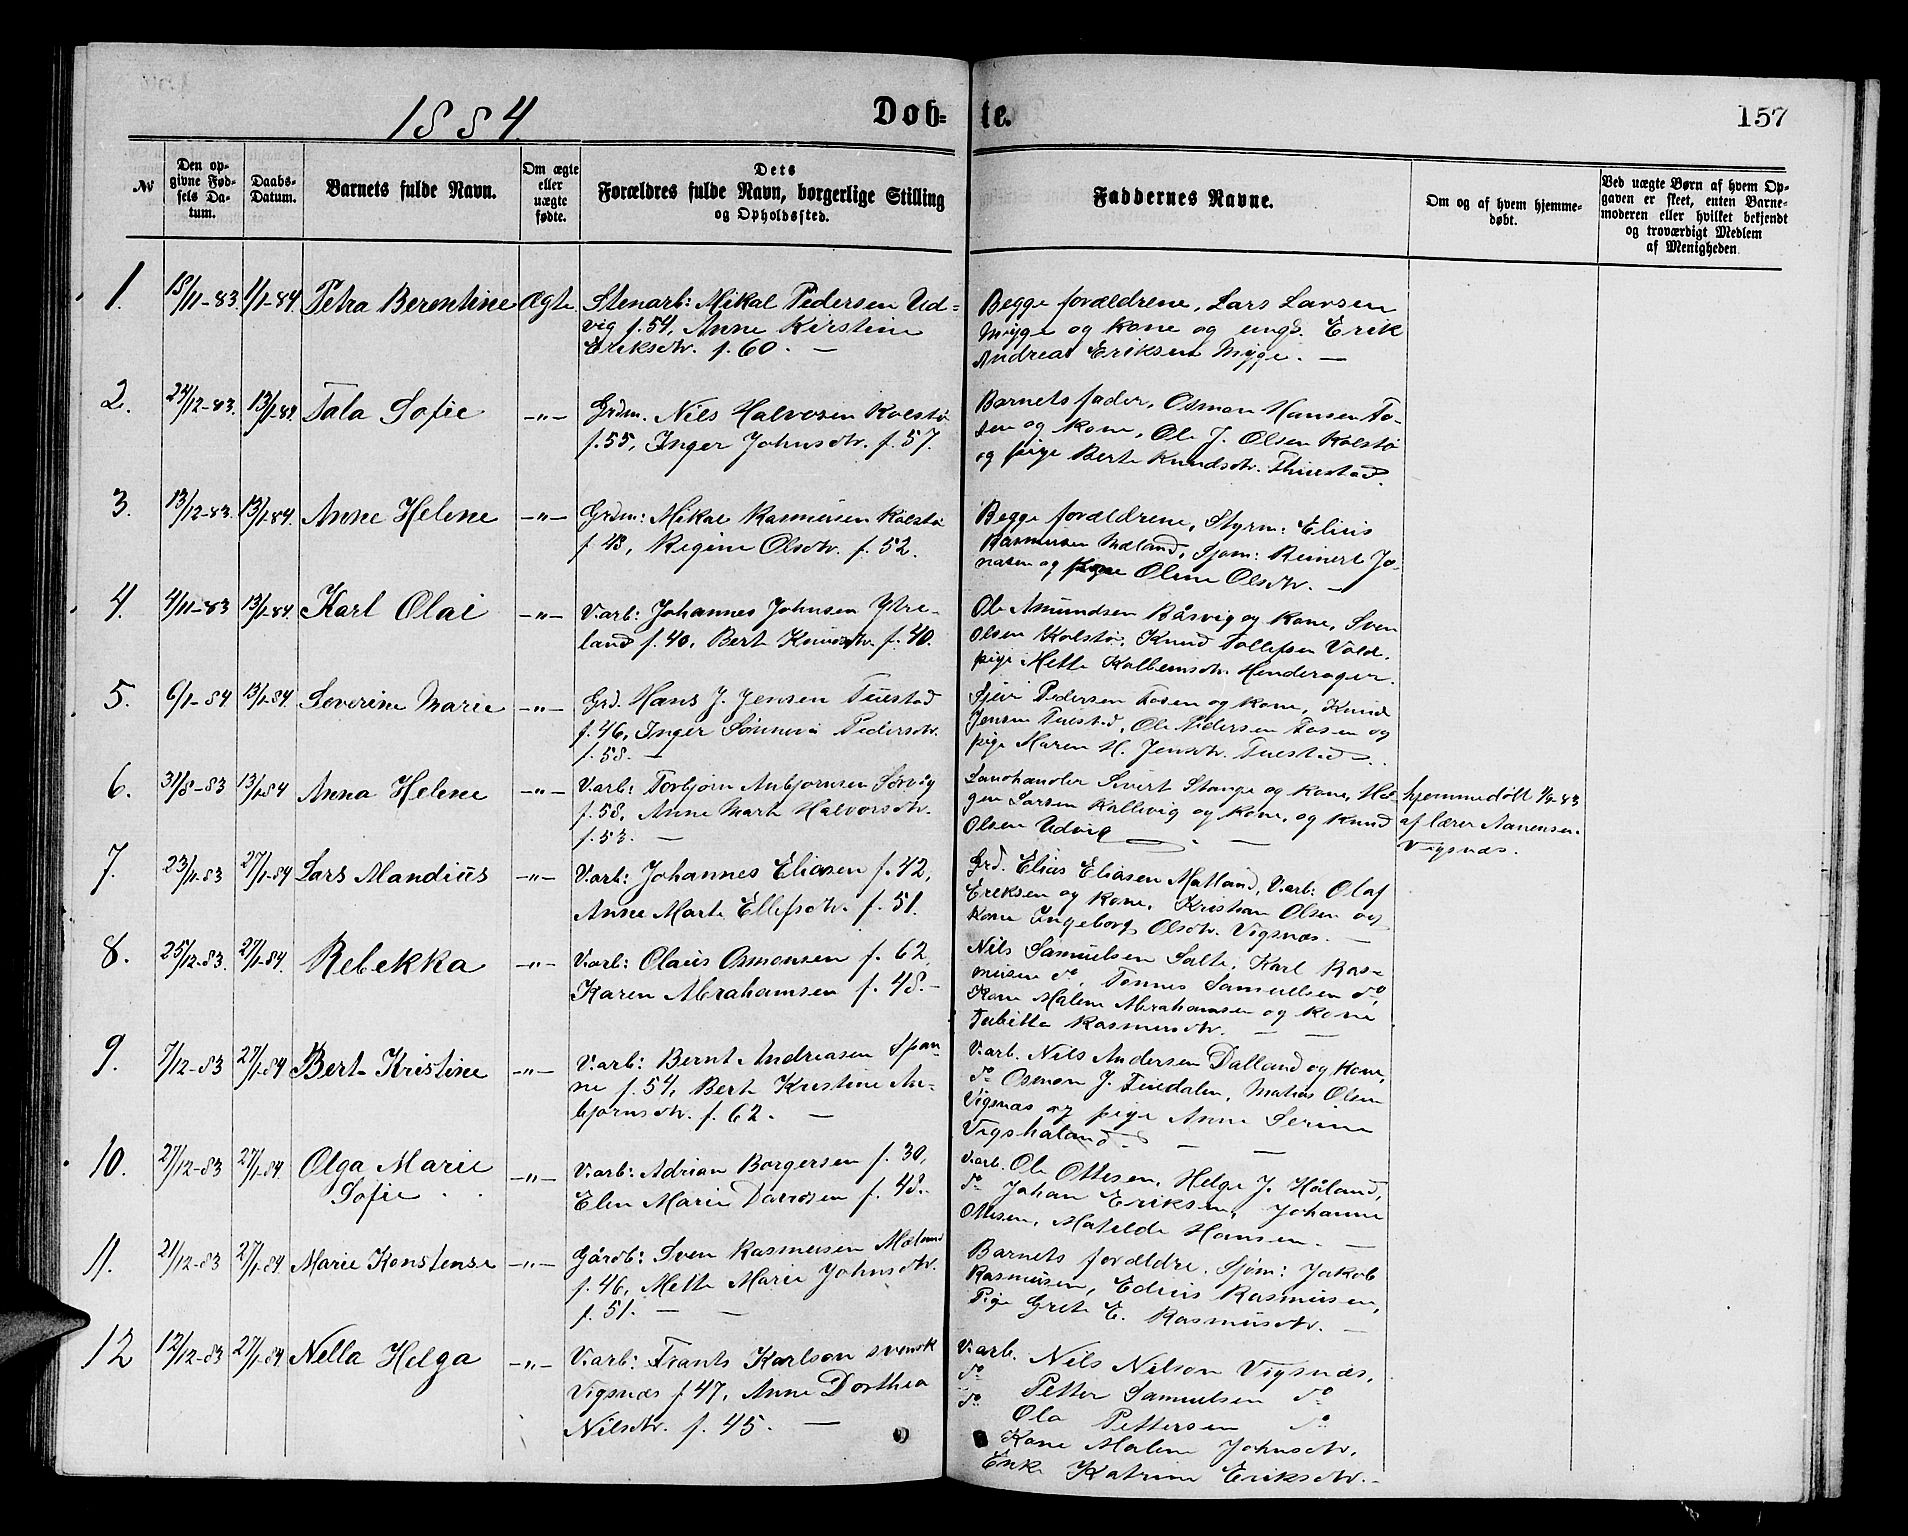 1884
Døb-
te.
157
No
Den op-
givne Fød-
sels Da-
tum.
Daabs-
Datum.
Barnets fulde Navn.
Om ægte
eller
uægte
fødte.
Dets
Forældres fulde Navn, borgerlige Stilling
og Opholdssted.
Faddernes Navne.
Om og af hvem hjemme-
døbt.
Ved uægte Børn af hvem Op-
gaven er skeet, enten Barne-
moderen eller hvilket bekjendt
og troværdigt Medlem
af Menigheden
1. 15/11-83 1/1-84 Petra Berentine Ægte
Stenarb: Mikal Pedersen Ud-
vig f. 54, Anne Kirstine
Eriksdtr. f. 60. —
Begge forældrene, Lars Larsen
Myge og kone og ungk. Erik
Andreas Eriksen Myge. —
2. 24/12-83. 13/1-84 Tala Sofie —"—
Grdm. Nils Halvorsen Kolstø
f. 55, Inger Johnsdtr. f. 57.
Barnets fader, Osmon Hansen Fo-
sen og kone, Ole J. Olsen Kolstø
og pige Berte Knudsdtr. Thuestad.
3. 13/12-83. 13/1-84. Anne Helene —"—
Grdm: Mikal Rasmusen Kolstø
f. 48, Regine Olsdtr. f. 52.
Begge forældrene, Styrm: Elius
Rasmusen Mæland, Sjøm: Reinert Jo-
nasen og pige Oline Olsdtr. —
4. 4/11-83 13/1-84 Karl Olai —"—
V.arb: Johannes Johnsen Ytre-
land f. 40, Bert Knudsdtr. f. 40.
Ole Amundsen Båsvig og kone, Sven
Olsen Kolstø, Knud Tollefsen Vold,
pige Mette Kolbensdtr. Henderager.
5. 6/1-84 13/1-84. Severine Marie —"—
Grd. Hans J. Jensen Tuestad
f. 46, Inger Sønneva Pedersdtr.
f. 58. —
Sjur Pedersen Fosen og kone, Knud
Jensen Tuestad, Ole Pedersen Fosen og
pige Maren M. Jensdtr. Tuestad —
6. 31/8-83 13/1-84 Anna Helene —"—
V.arb: Torbjørn Anbjørnsen Sørvig
f. 58, Anne Mart Halvorsdtr.
f. 53. —
Landhandler Sivert Stange og kone, Hå-
gen Larsen Kallevig og kone, og Knud
Olsen Udvig —
hjemmedøbt 1/9-83
af lærer Aanensen
Vigsnæs.
7. 23/11-83 27/1-84 Lars Mandius —"—
V.arb: Johannes Eliasen f. 42,
Anne Marte Ellefsdtr. f. 51.
Grd. Elias Eliasen Matland, V.arb: Olaf
Eriksen og kone, Kristian Olsen og
kone Ingeborg Olsdtr. Vigsnæs. —
8. 25/12-83. 27/1-84. Rebekka —"—
V.arb: Claus Osmonsen f. 62,
Karen Abrahamsen f. 48. —
Nils Samuelsen Salte, Karl Ras-
musen do, Tønnes Samuelsen do,
Kone Malene Abrahamsen og kone
Tabitta Rasmusdtr. — —
9. 7/12-83 27/1-84 Bert Kristine —"—
V.arb: Bernt Andreasen Span-
ne f. 54, Bert Kristine An-
bjørnsdtr. f. 62. —
V.arb. Nils Andersen Dalland og kone,
do Osmon J. Tuedalen, Matias Olsen
Vigsnæs og pige Anne Serine
Vigshaland. — —
10. 27/12-83 27/1-84 Olga Marie
Sofie —"—
V.arb: Adrian Borgersen f. 30,
Elen Marie Davidsen f. 48.
V.arb. Ole Ottesen, Helge J. Håland,
do Johan Eriksen, Johanne
Ottesen, Matelde Hansen. —
11. 21/12-83 27/1-84. Marie Konstense —"—
Gårdb: Sven Rasmusen Mæland
f. 46, Mette Marie Johnsdtr.
f. 51. — —
Barnets forældre. Sjøm: Jakob
Rasmusen, Edius Rasmusen,
Pige Grete E. Rasmusdtr. —
12 12/12-83 27/1-84 Nella Helga —"—
V.arb: Frants Karlson svensk
Vigsnæs f 47, Anne Dorthea
Nilsdtr. f. 45. —
V.arb. Nils Nilson Vigsnæs,
do Petter Samuelsen do
do Ola Pettersen do
Kone Malene Johnsdtr,
Enke Katrine Eriksdtr. —